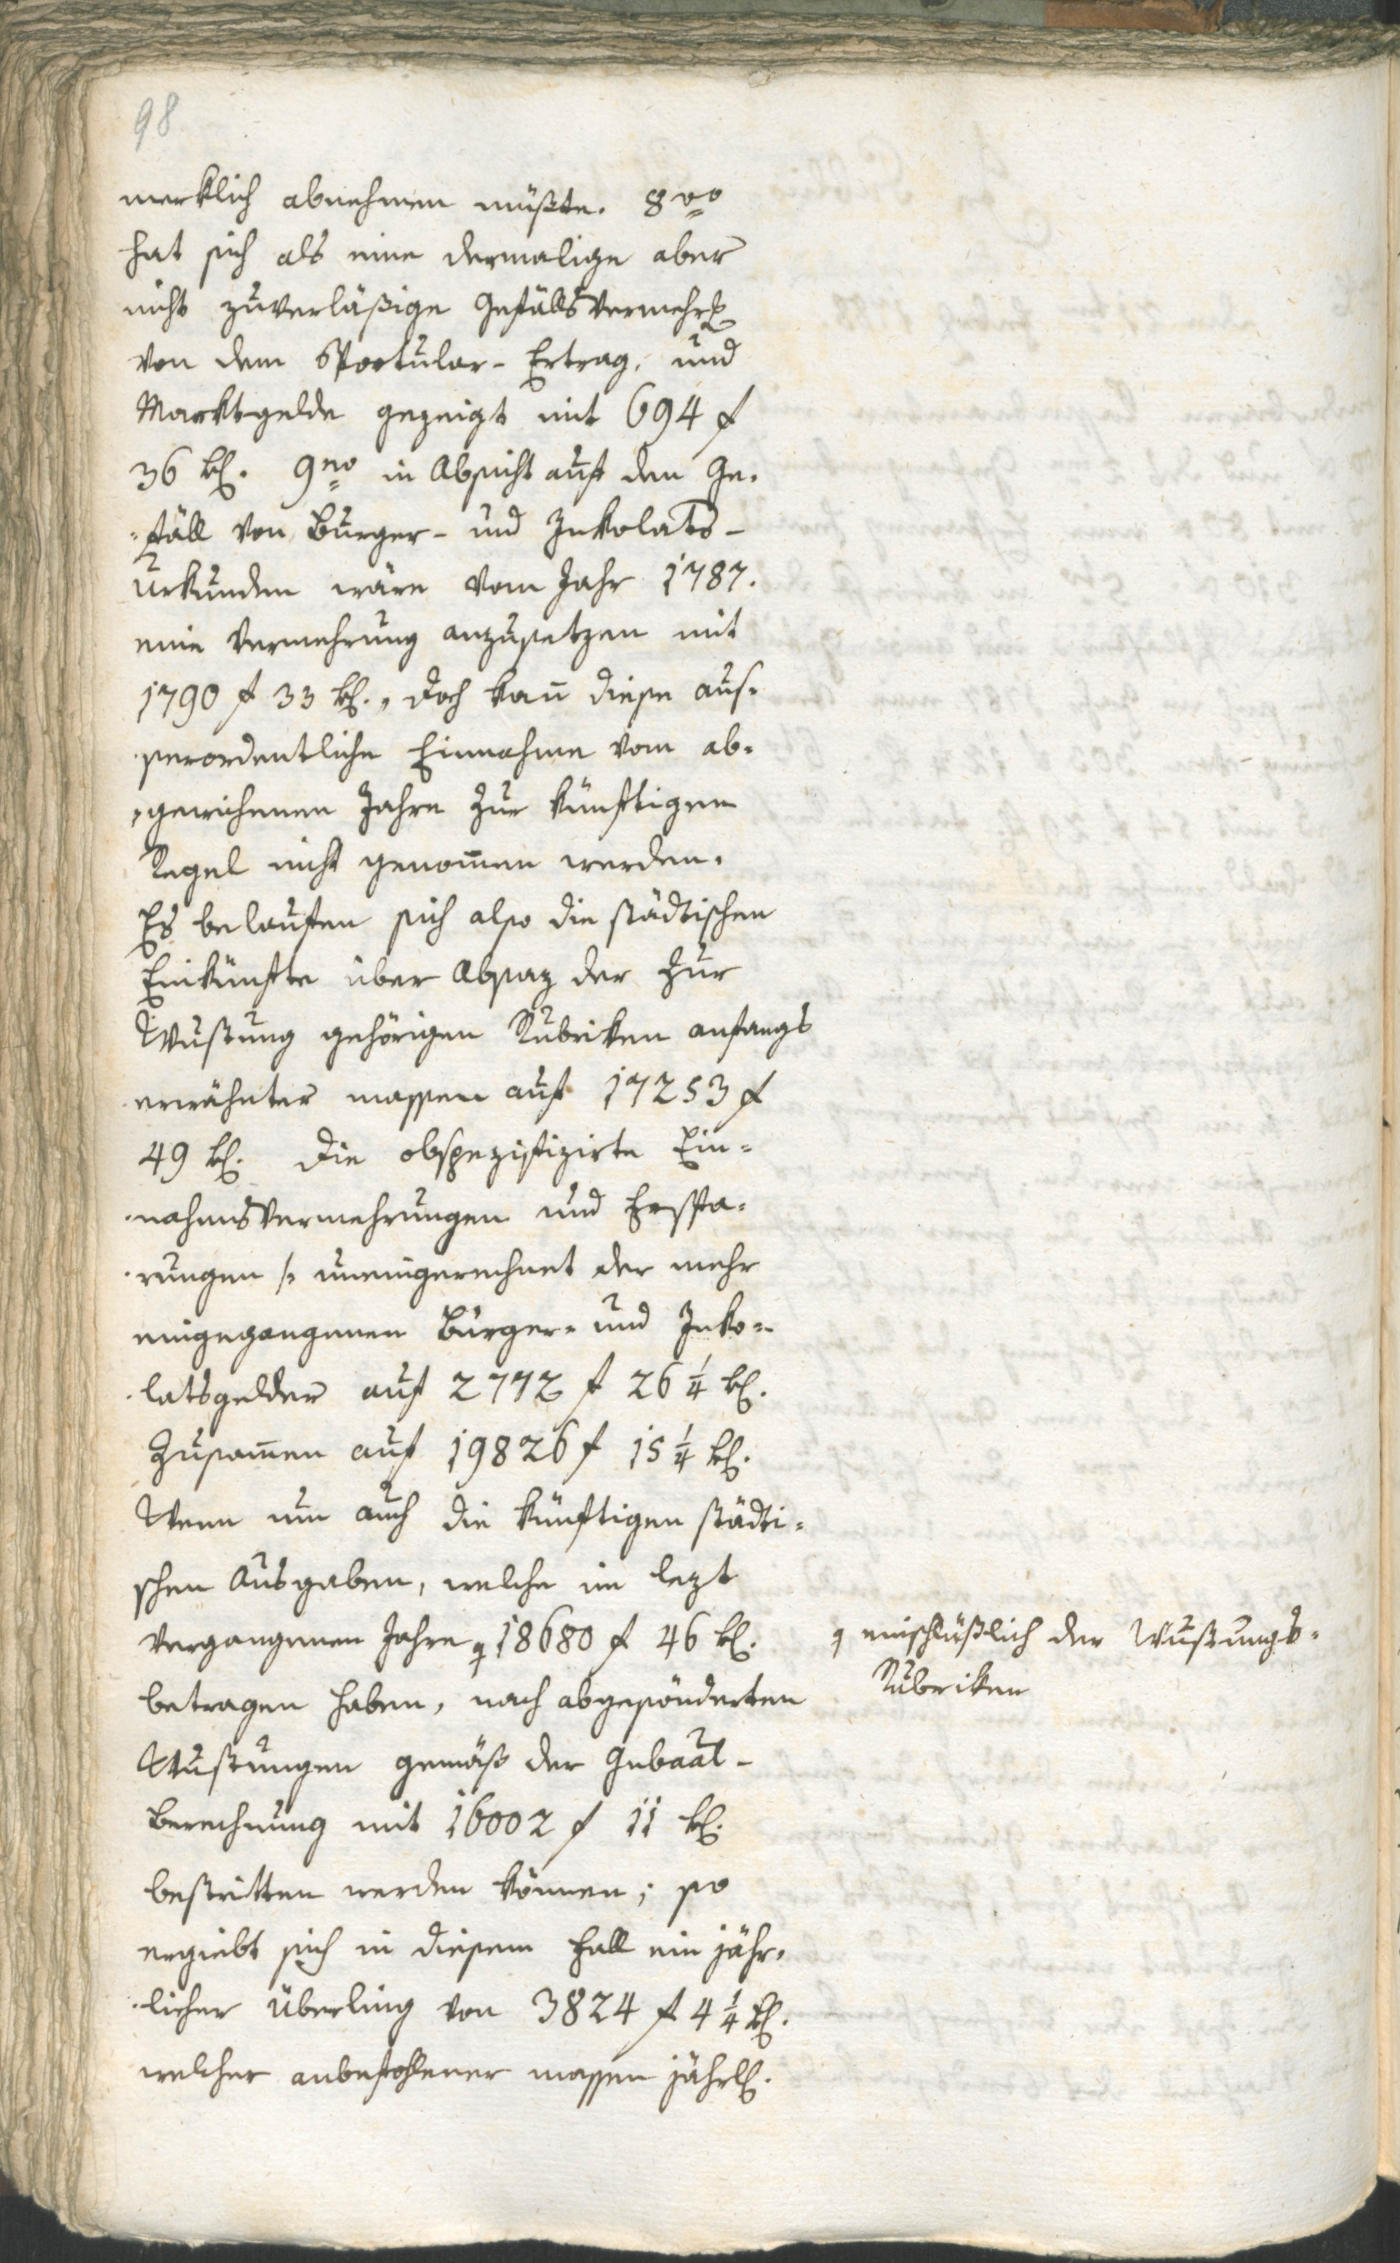 98
merklich abnehmen müßte. 8vo
hat sich als eine dermalige aber
nicht zuverläßige Gefälls Vermehrg
von dem Sportular- Ertrag, und
Marktgelde gezeigt mit 694 f
36 kr. 9no in Absicht auf den Ge-
-fäll von Bürger- und Inkolats-
Urkunden wäre vom Jahr 1787.
eine Vermehrung anzusetzen mit
1790 f 33 kr., doch kan̄ diese aus-
serordentliche Einnahme vom ab-
-gewichenen Jahre zur künftigen
Regel nicht genom̄en werden.
Es belaufen sich also die städtischen
Einkünfte über Absaz der zur
Wustung gehörigen Rubriken anfangs
erwähnter massen auf 17253 f
49 kr. die obspezifizirte Ein-
-nahmsVermehrungen und Erspa-
-rungen /: uneingerechnet der mehr
eingegangenen Bürger- und Inko-
-latsgelder auf 2772 f 26 1/4 kr.
Zusam̄en auf 19826 f 15 1/4 kr.
Wenn nun auch die künftigen städti-
schen Ausgaben, welche im lezt
vergangenen Jahre 18680 f 46 kr.
einschlüßlich der Wustungs-
Rubriken
betragen haben, nach abgesönderten
Wustungen gemäß der
Berechnung mit 16002 f 11 kr.
bestritten werden können; so
ergiebt sich in diesem Fall ein jähr-
-licher Überling von 3824 f 4 1/4 kr.
welcher anbefohlener massen jährl.